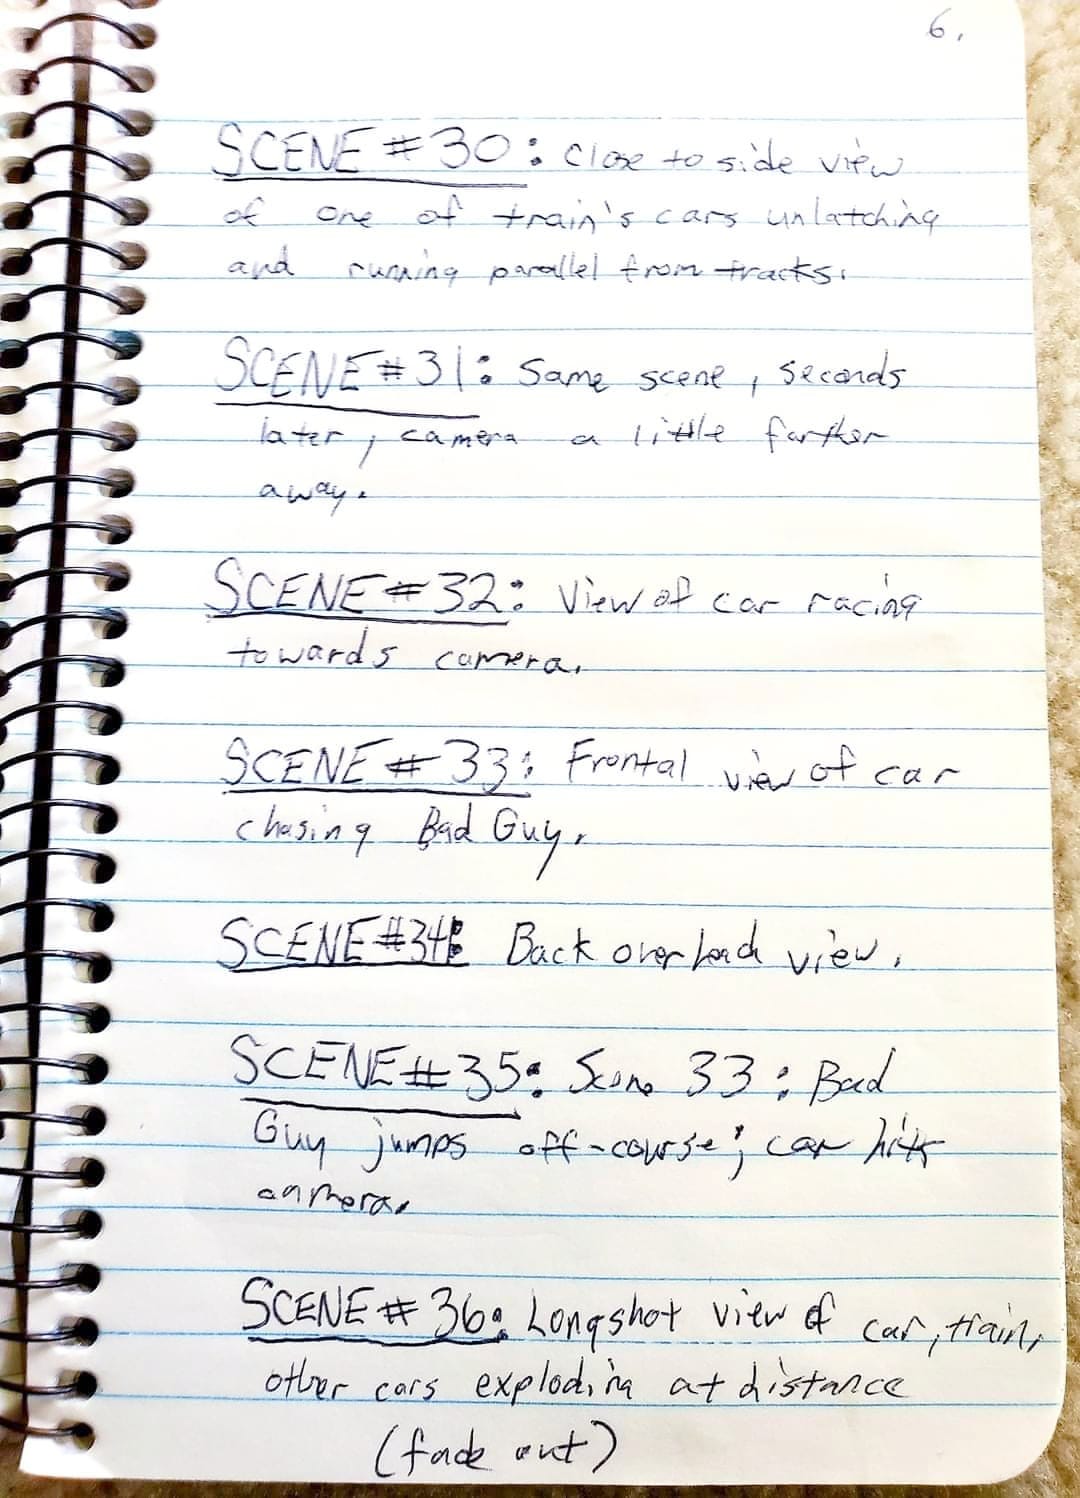 6.
SCENE #30: Close to side view
of one of train's cars unlatching
and running parallel from tracks.
SCENE #31: Same scene, seconds
later, camera a little farther
away.
SCENE #32: View of car racing
towards camera.
SCENE #33: Frontal view of car
chasing Bad Guy.
SCENE #34: Back overhead view.
SCENE #35: Scene 33: Bad
Guy jumps off-course; car hits
camera.
SCENE #36: Longshot view of car, train,
other cars exploding at distance
(fade out)